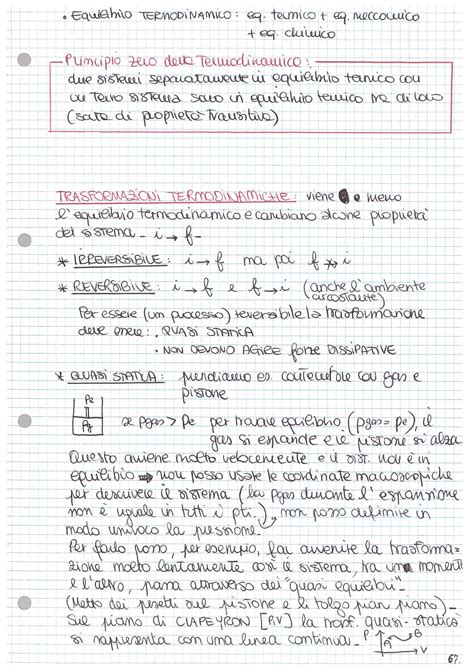 • Equilibrio TERMODINAMICO: eq. termico + eq. meccanico
+ eq. chimico
Principio zero della Termodinamica:
due sistemi separatamente in equilibrio termico con
un terzo sistema sono in equilibrio termico tra di loro
(sorta di proprietà transitiva)
TRASFORMAZIONI TERMODINAMICHE: viene e meno
l'equilibrio termodinamico e cambiano alcune proprietà
del sistema - i → f -
* IRREVERSIBILE: i → f ma poi f ↛ i
* REVERSIBILE: i → f e f → i (anche l'ambiente
circostante)
Per essere (un processo) reversibile la trasformazione
deve essere: • QUASI STATICA
• NON DEVONO AGIRE forze DISSIPATIVE
* QUASI STATICA: prendiamo es. contenitore con gas e
pistone
Pe
Pg
se pgas > Pe per trovare equilibrio (pgas = pe), il
gas si espande e il pistone si alza
Questo avviene molto velocemente e il sist. non è in
equilibrio → non posso usare le coordinate macroscopiche
per descrivere il sistema (la pgas durante l'espansione
non è uguale in tutti i pti.), non posso definire in
modo univoco la pressione.
Per farlo posso, per esempio, far avvenire la trasforma=
zione molto lentamente così il sistema, tra un momento
e l'altro, passa attraverso dei "quasi equilibri" -
(Metto dei pesetti sul pistone e li tolgo pian piano) -
Sul piano di CLAPEYRON [P,V] la trasf. quasi-statica
si rappresenta con una linea continua - P A B
V
67.